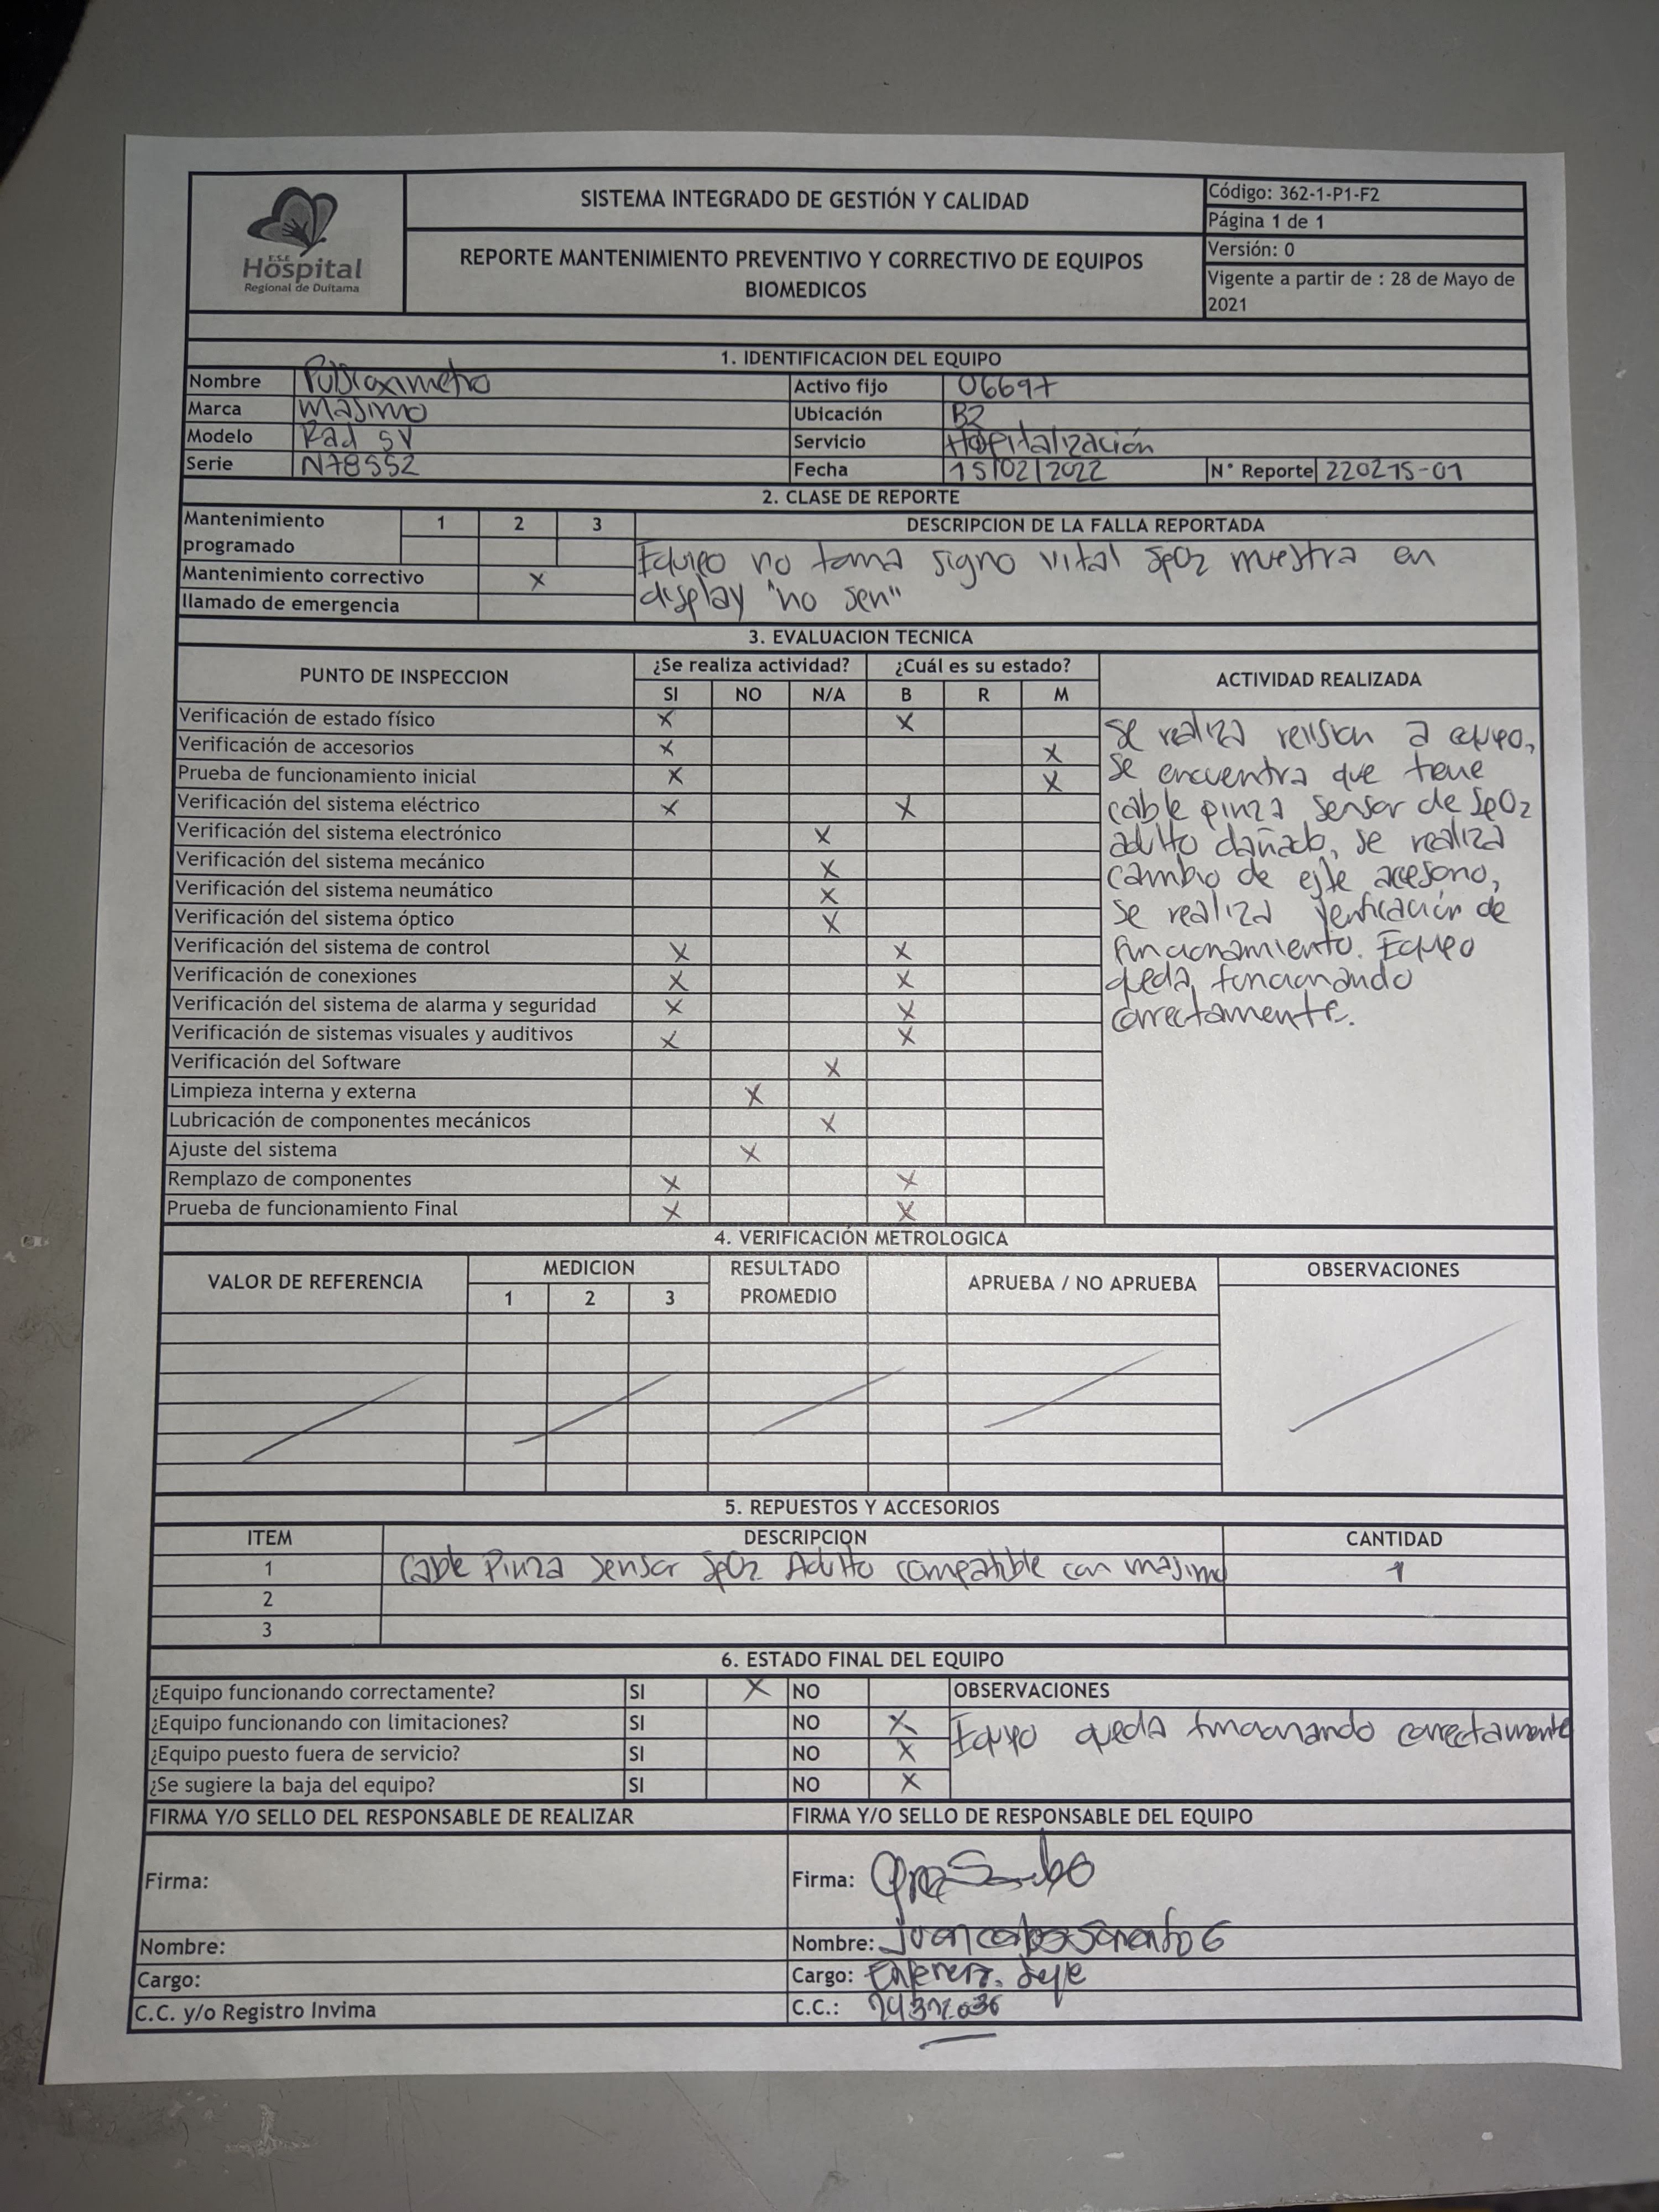 E.S.E
Hospital
Regional de Duitama
SISTEMA INTEGRADO DE GESTIÓN Y CALIDAD
REPORTE MANTENIMIENTO PREVENTIVO Y CORRECTIVO DE EQUIPOS
BIOMEDICOS
Código: 362-1-P1-F2
Página 1 de 1
Versión: 0
Vigente a partir de : 28 de Mayo de
2021
1. IDENTIFICACION DEL EQUIPO
Nombre Pulsioximetro Activo fijo 06697
Marca masimo Ubicación B2
Modelo Rad 5V Servicio Hospitalización
Serie N78552 Fecha 15/02/2022 N° Reporte 220215-01
2. CLASE DE REPORTE
Mantenimiento programado 1 2 3 DESCRIPCION DE LA FALLA REPORTADA
Mantenimiento correctivo X
llamado de emergencia
Equipo no toma signo vital SpO2 muestra en
display "no sen"
3. EVALUACION TECNICA
PUNTO DE INSPECCION ¿Se realiza actividad? ¿Cuál es su estado? ACTIVIDAD REALIZADA
SI NO N/A B R M
Verificación de estado físico X X
Verificación de accesorios X X
Prueba de funcionamiento inicial X X
Verificación del sistema eléctrico X X
Verificación del sistema electrónico X
Verificación del sistema mecánico X
Verificación del sistema neumático X
Verificación del sistema óptico X
Verificación del sistema de control X X
Verificación de conexiones X X
Verificación del sistema de alarma y seguridad X X
Verificación de sistemas visuales y auditivos X X
Verificación del Software X
Limpieza interna y externa X
Lubricación de componentes mecánicos X
Ajuste del sistema X
Remplazo de componentes X X
Prueba de funcionamiento Final X X
Se realiza revision a equipo,
se encuentra que tiene
cable pinza sensor de SpO2
adulto dañado, se realiza
cambio de este acesorio,
se realiza verificación de
funcionamiento. Equipo
queda funcionando
correctamente.
4. VERIFICACIÓN METROLOGICA
VALOR DE REFERENCIA MEDICION RESULTADO PROMEDIO APRUEBA / NO APRUEBA OBSERVACIONES
1 2 3
5. REPUESTOS Y ACCESORIOS
ITEM DESCRIPCION CANTIDAD
1 Cable Pinza sensor SpO2 Adulto compatible con masimo 1
2
3
6. ESTADO FINAL DEL EQUIPO
¿Equipo funcionando correctamente? SI X NO OBSERVACIONES
¿Equipo funcionando con limitaciones? SI NO X Equipo queda funcionando correctamente
¿Equipo puesto fuera de servicio? SI NO X
¿Se sugiere la baja del equipo? SI NO X
FIRMA Y/O SELLO DEL RESPONSABLE DE REALIZAR FIRMA Y/O SELLO DE RESPONSABLE DEL EQUIPO
Firma: Firma:
Nombre: Nombre: Juan carlos Sarmiento G
Cargo: Cargo: Jefe
C.C. y/o Registro Invima C.C.: